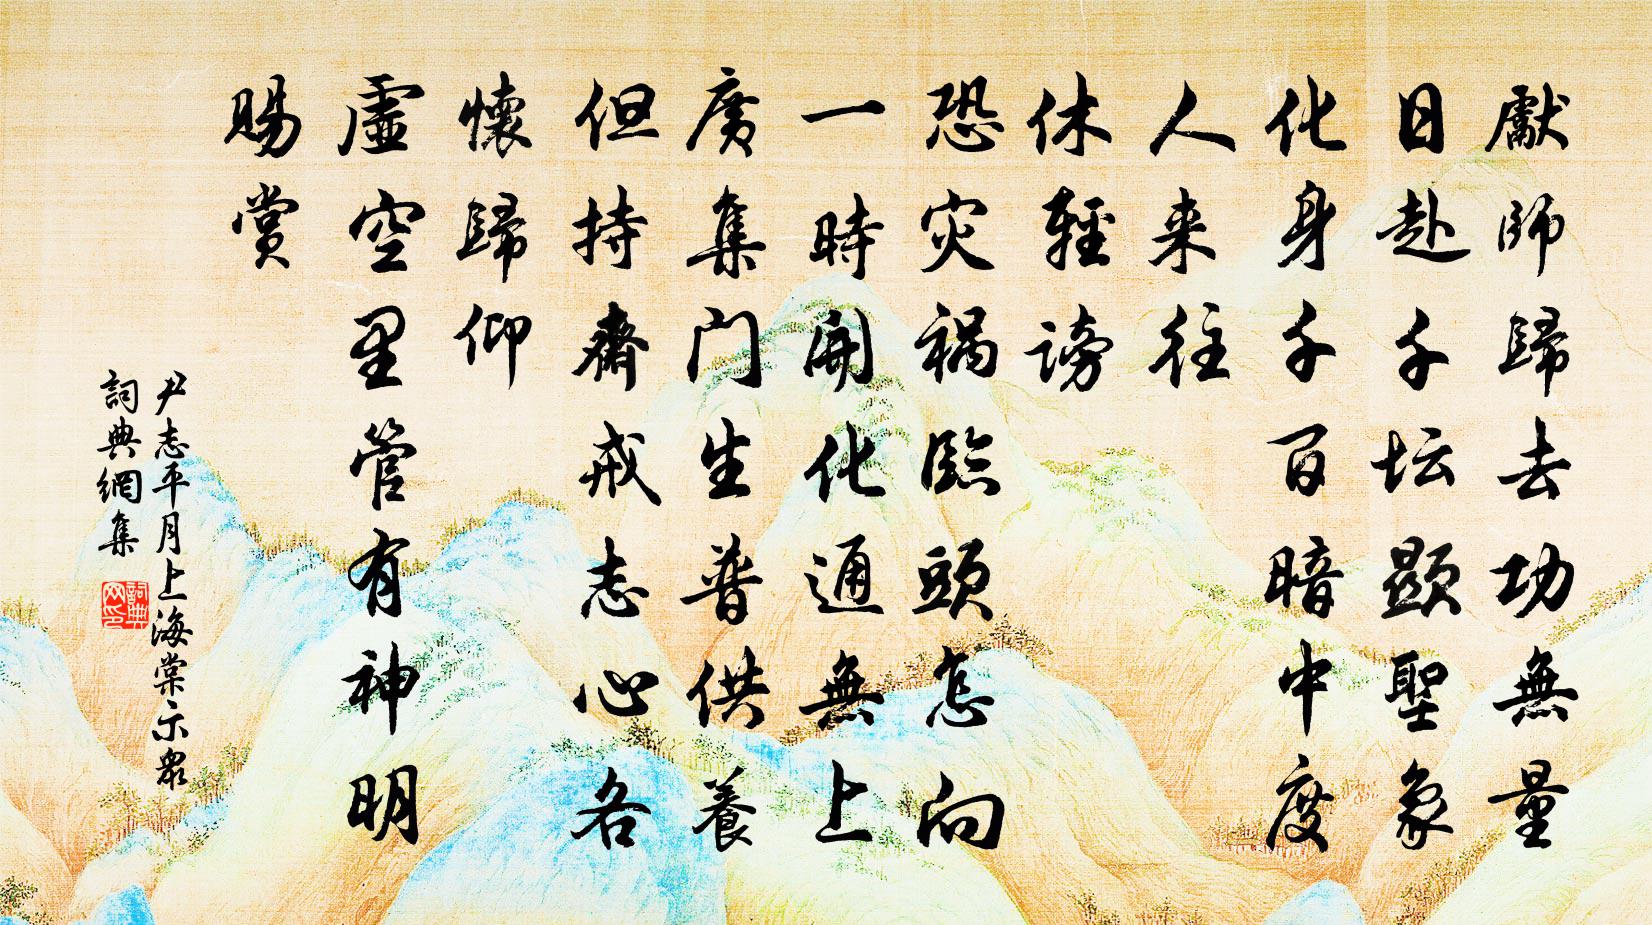 獻師歸去功無量
日赴千坛顯聖象
化身千百暗中度
人来往
休輕謗
恐灾禍臨頭怎向
一時開化通無上
廣集门生普供養
但持齋戒志心各
懷歸仰
虛空里管有神明
賜賞
尹志平月上海棠示眾
詞典網集
詞典